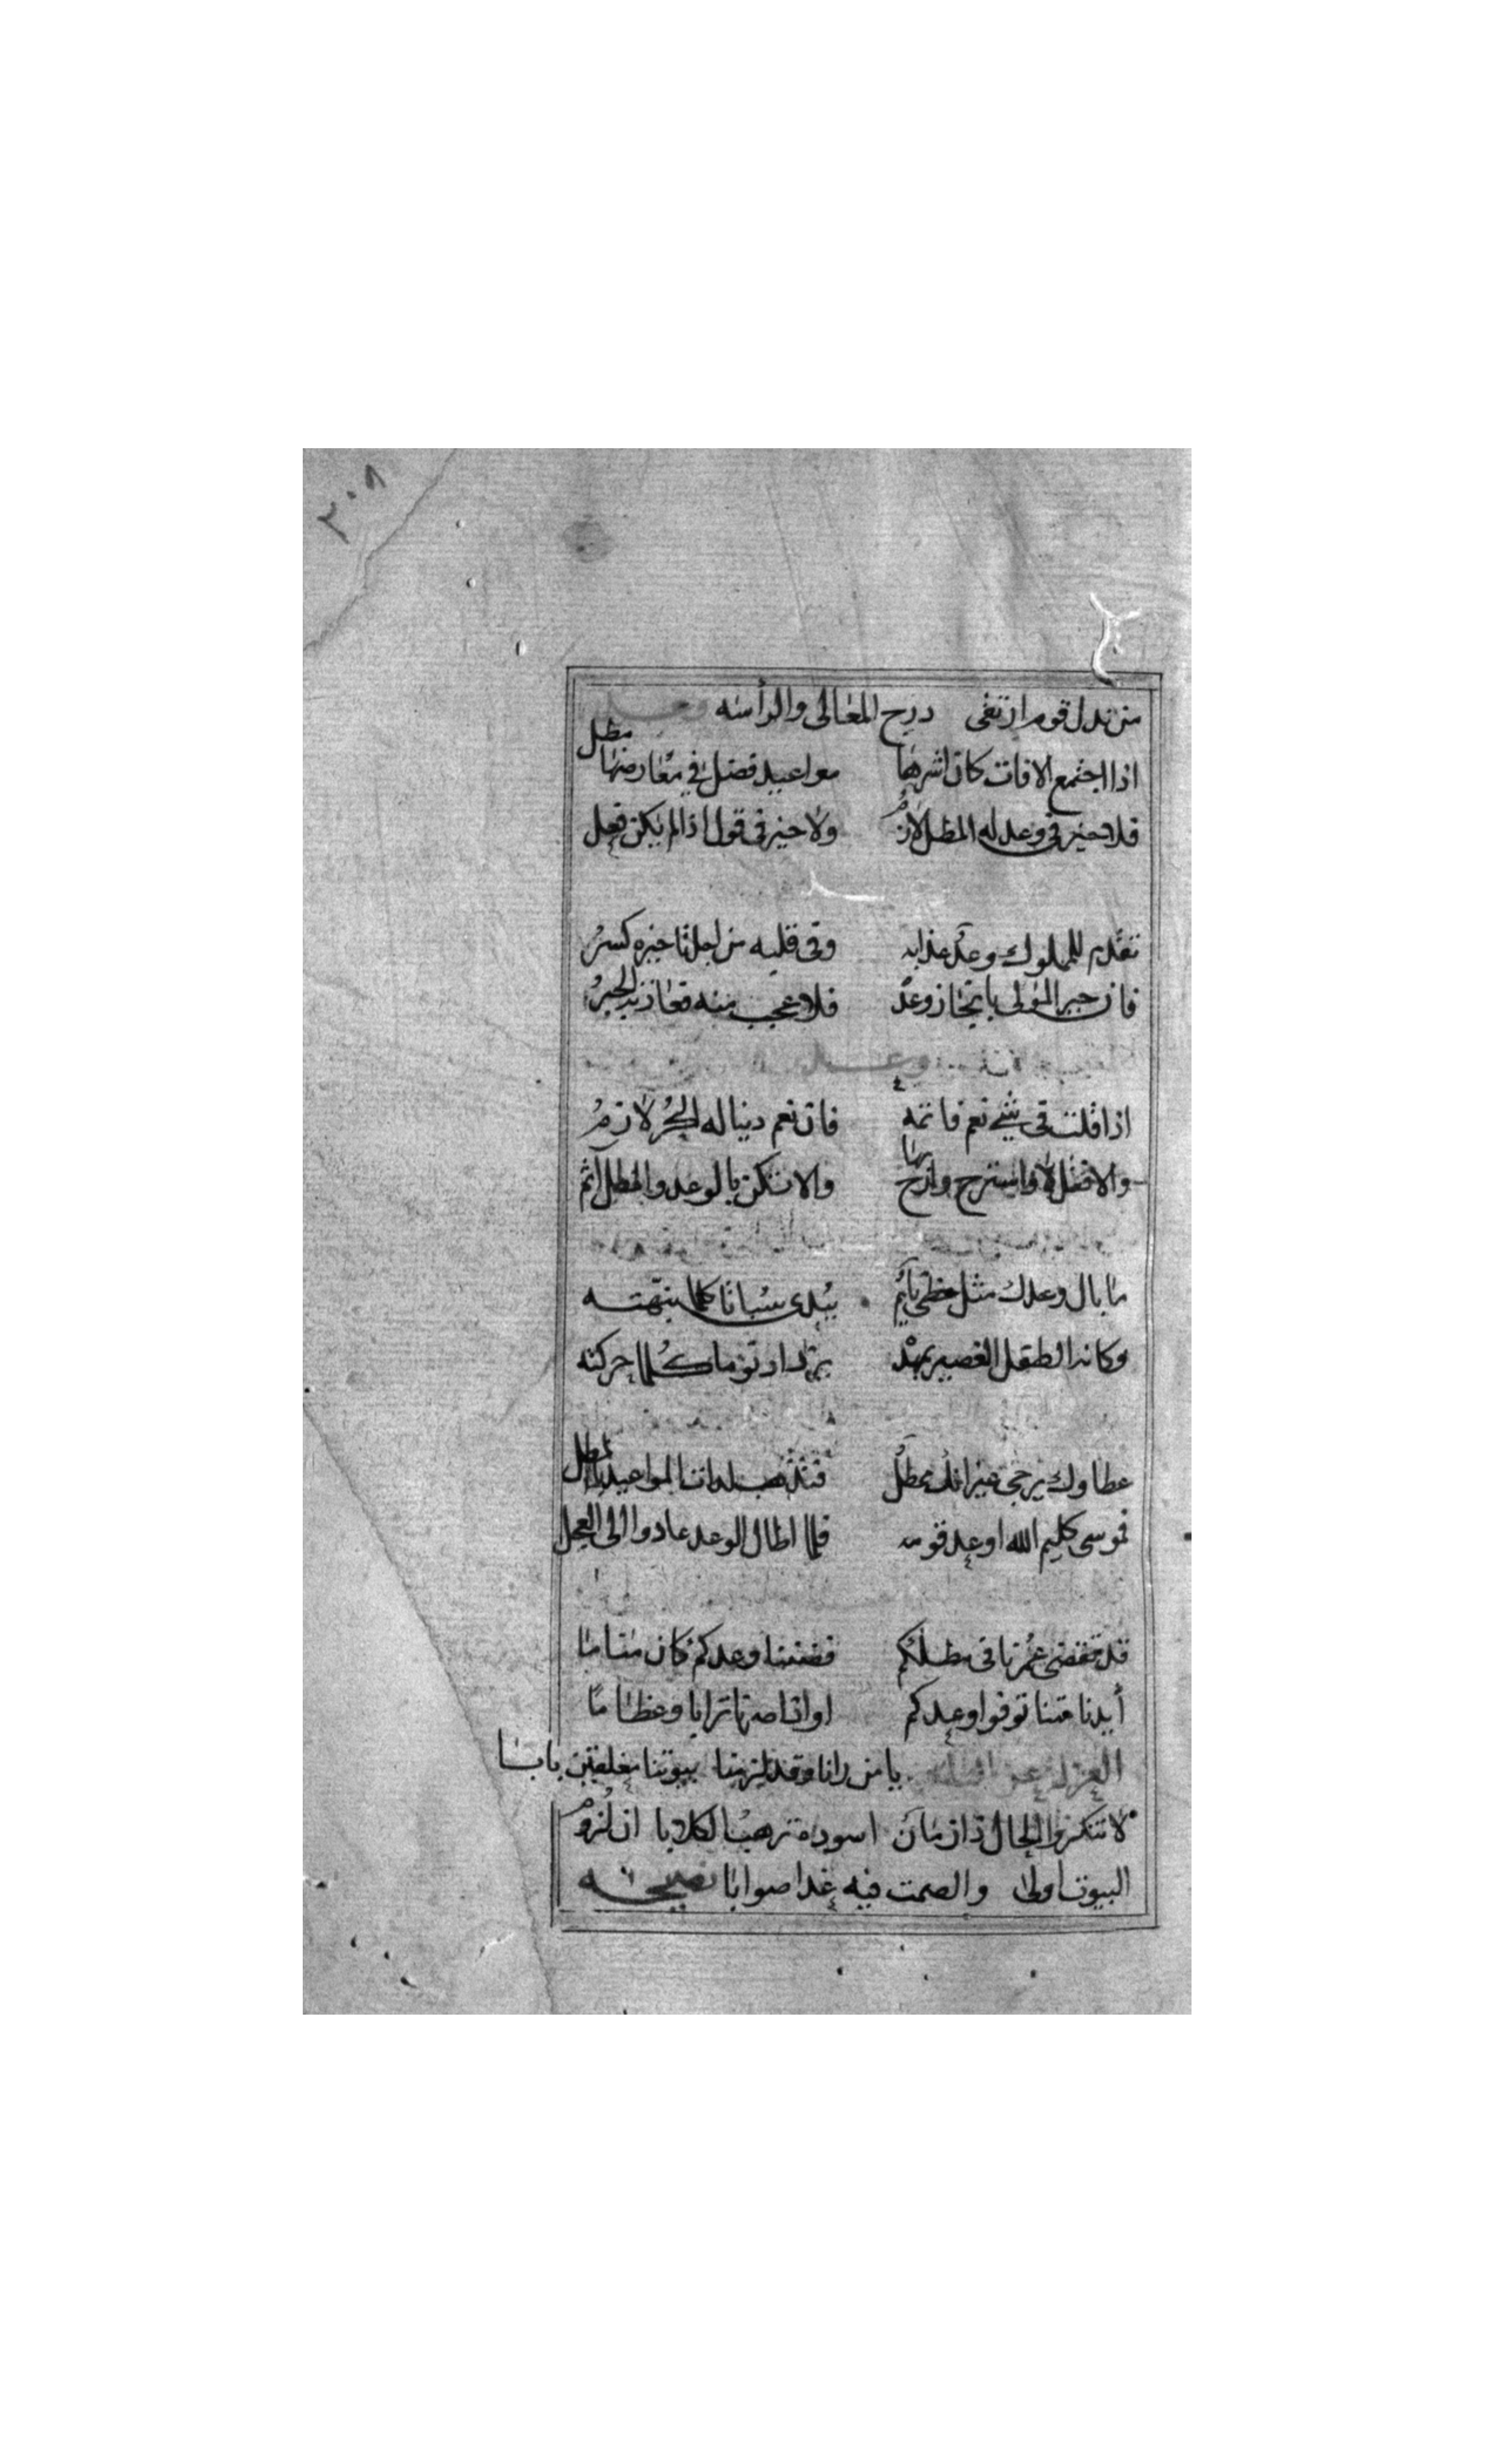 ٣٠٨
من ندل قوم ارتقى درج المعالى والرأسه وعد
اذا اجتمع الافات كان اشرها مواعيد فضل فى معارضها مطل
فلا خير فى وعد له المطل لازم ولا خير فى قول اذا لم يكن فعل
تقدم للمملوك وعد غدا به وفى قلبه من اجل تاخيره كسر
فان جبر المولى بانجاز وعد فلا عجب منه
وعد
اذا قلت فى شئ نعم فاتمه فان نعم دينا له الحر لازم
والا فقل لا واسترح وارح بها والا تكن بالوعد والمطل آثم
ما بال وعدك مثل حظى نايم يبدى سباتا كلما نبهته
وكانه الطفل الصغير بمهد يزداد نوما كلما حركته
عطاوك يرجى غير انك ممطل المواعيد بالمطل
فموسى كليم الله اوعد قومه فلما اطال الوعد عادوا الى العجل
قد تقضى عمرنا فى مطلكم فظننا وعدكم كان مناما
أيدنا متنا توفوا وعدكم او اذا صرنا ترابا وعظاما
العزلة عن يا من رانا وقد لزمنا بيوتنا مغلقين بابا
لا تنكروا الحال ذا زمان اسوده ترهب الكلابا ان لزوم
البيوت اولى والصمت فيه غدا صوابا نصيحه